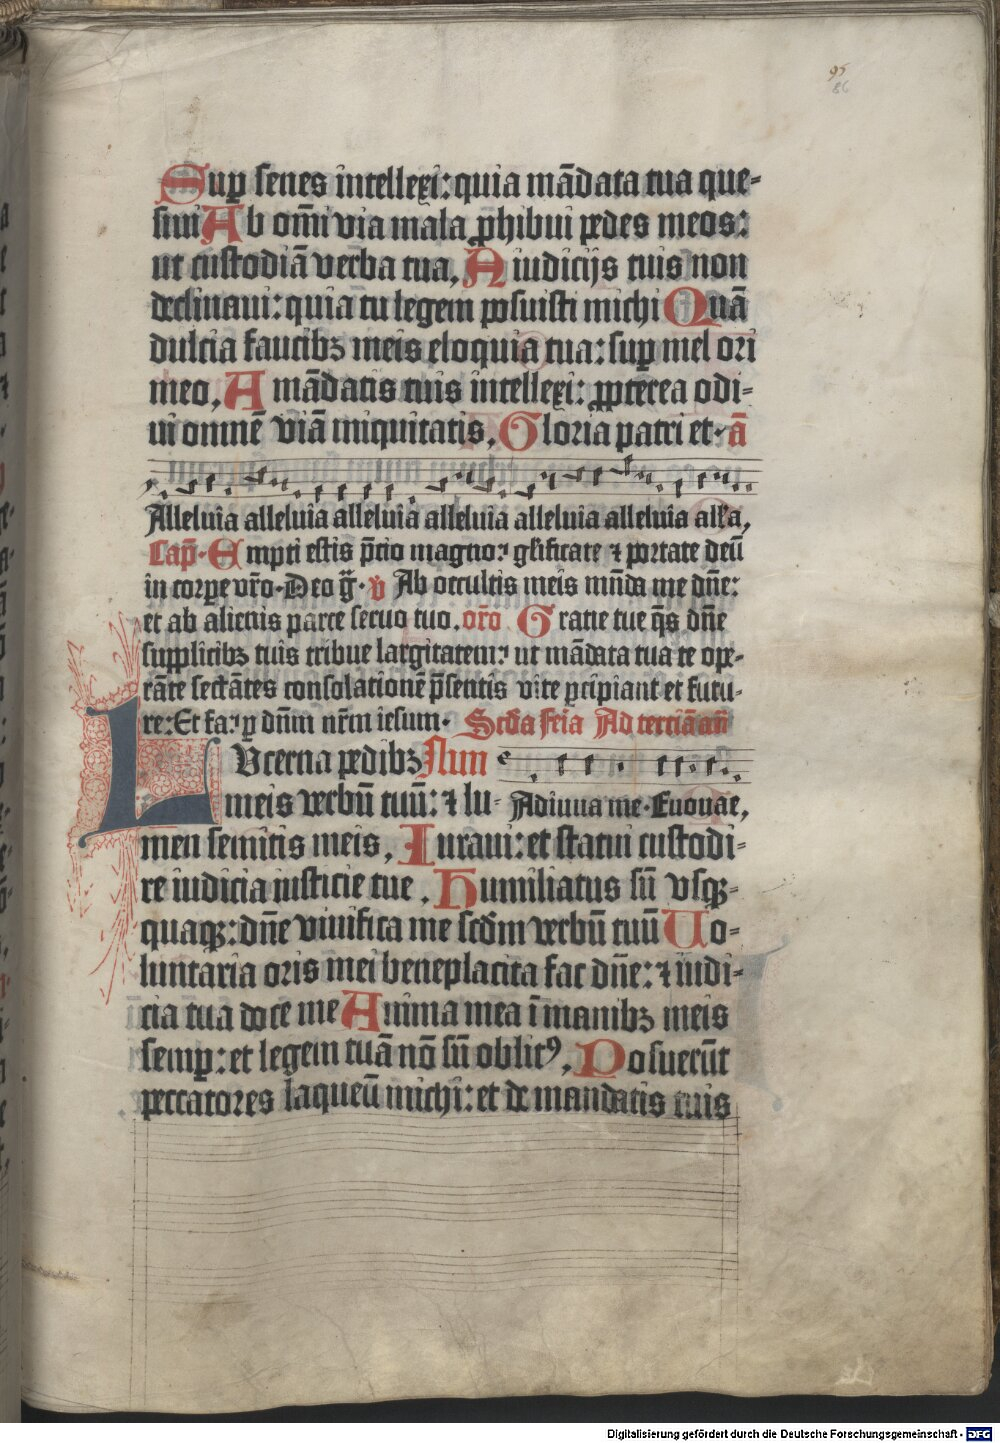 95
86
Sup senes intellexi: quia mādata tua que-
siui Ab om̄i via mala ꝓhibui pedes meos:
ut custodiā verba tua. A iudicijs tuis non
declinaui: quia tu legem posuisti michi Quā
dulcia faucibꝫ meis eloquia tua: suꝑ mel ori
meo. A mādatis tuis intellexi: ꝓpterea odi-
ui omnē viā iniquitatis. Gloria patri et. ā
Alleluia alleluia alleluia alleluia alleluia alleluia all'a,
Cap̄. Empti estis p̄cio magno: glīficate ⁊ portate deū
in corpe vr̄o. Deo gͬ. v̄ Ab occultis meis mūda me dn̄e:
et ab alienis parce seruo tuo. or̄o Gratie tue q̄s dn̄e
supplicibꝫ tuis tribue largitatem: ut mādata tua te ope-
rāte sectātes consolationē p̄sentis vite ꝑcipiant et futu-
re: Et fa. ꝑ dn̄m nr̄m iesum. Scd̄a feīa Ad terciā an̄
Lucerna pedibꝫ Nun
meis verbū tuū: ⁊ lu- Adiuua me. Euouae,
men semitis meis. Iuraui: et statui custodi-
re iudicia iusticie tue. Humiliatus sū vsqꝫ-
quaqꝫ: dn̄e viuifica me scd̄m verbū tuū Uo-
luntaria oris mei beneplacita fac dn̄e: ⁊ iudi-
cia tua doce me Anima mea ī manibꝫ meis
semꝑ: et legem tuā nō sū oblitꝰ. Posuerūt
peccatores laqueū michi: et de mandatis tuis
Digitalisierung gefördert durch die Deutsche Forschungsgemeinschaft - DFG